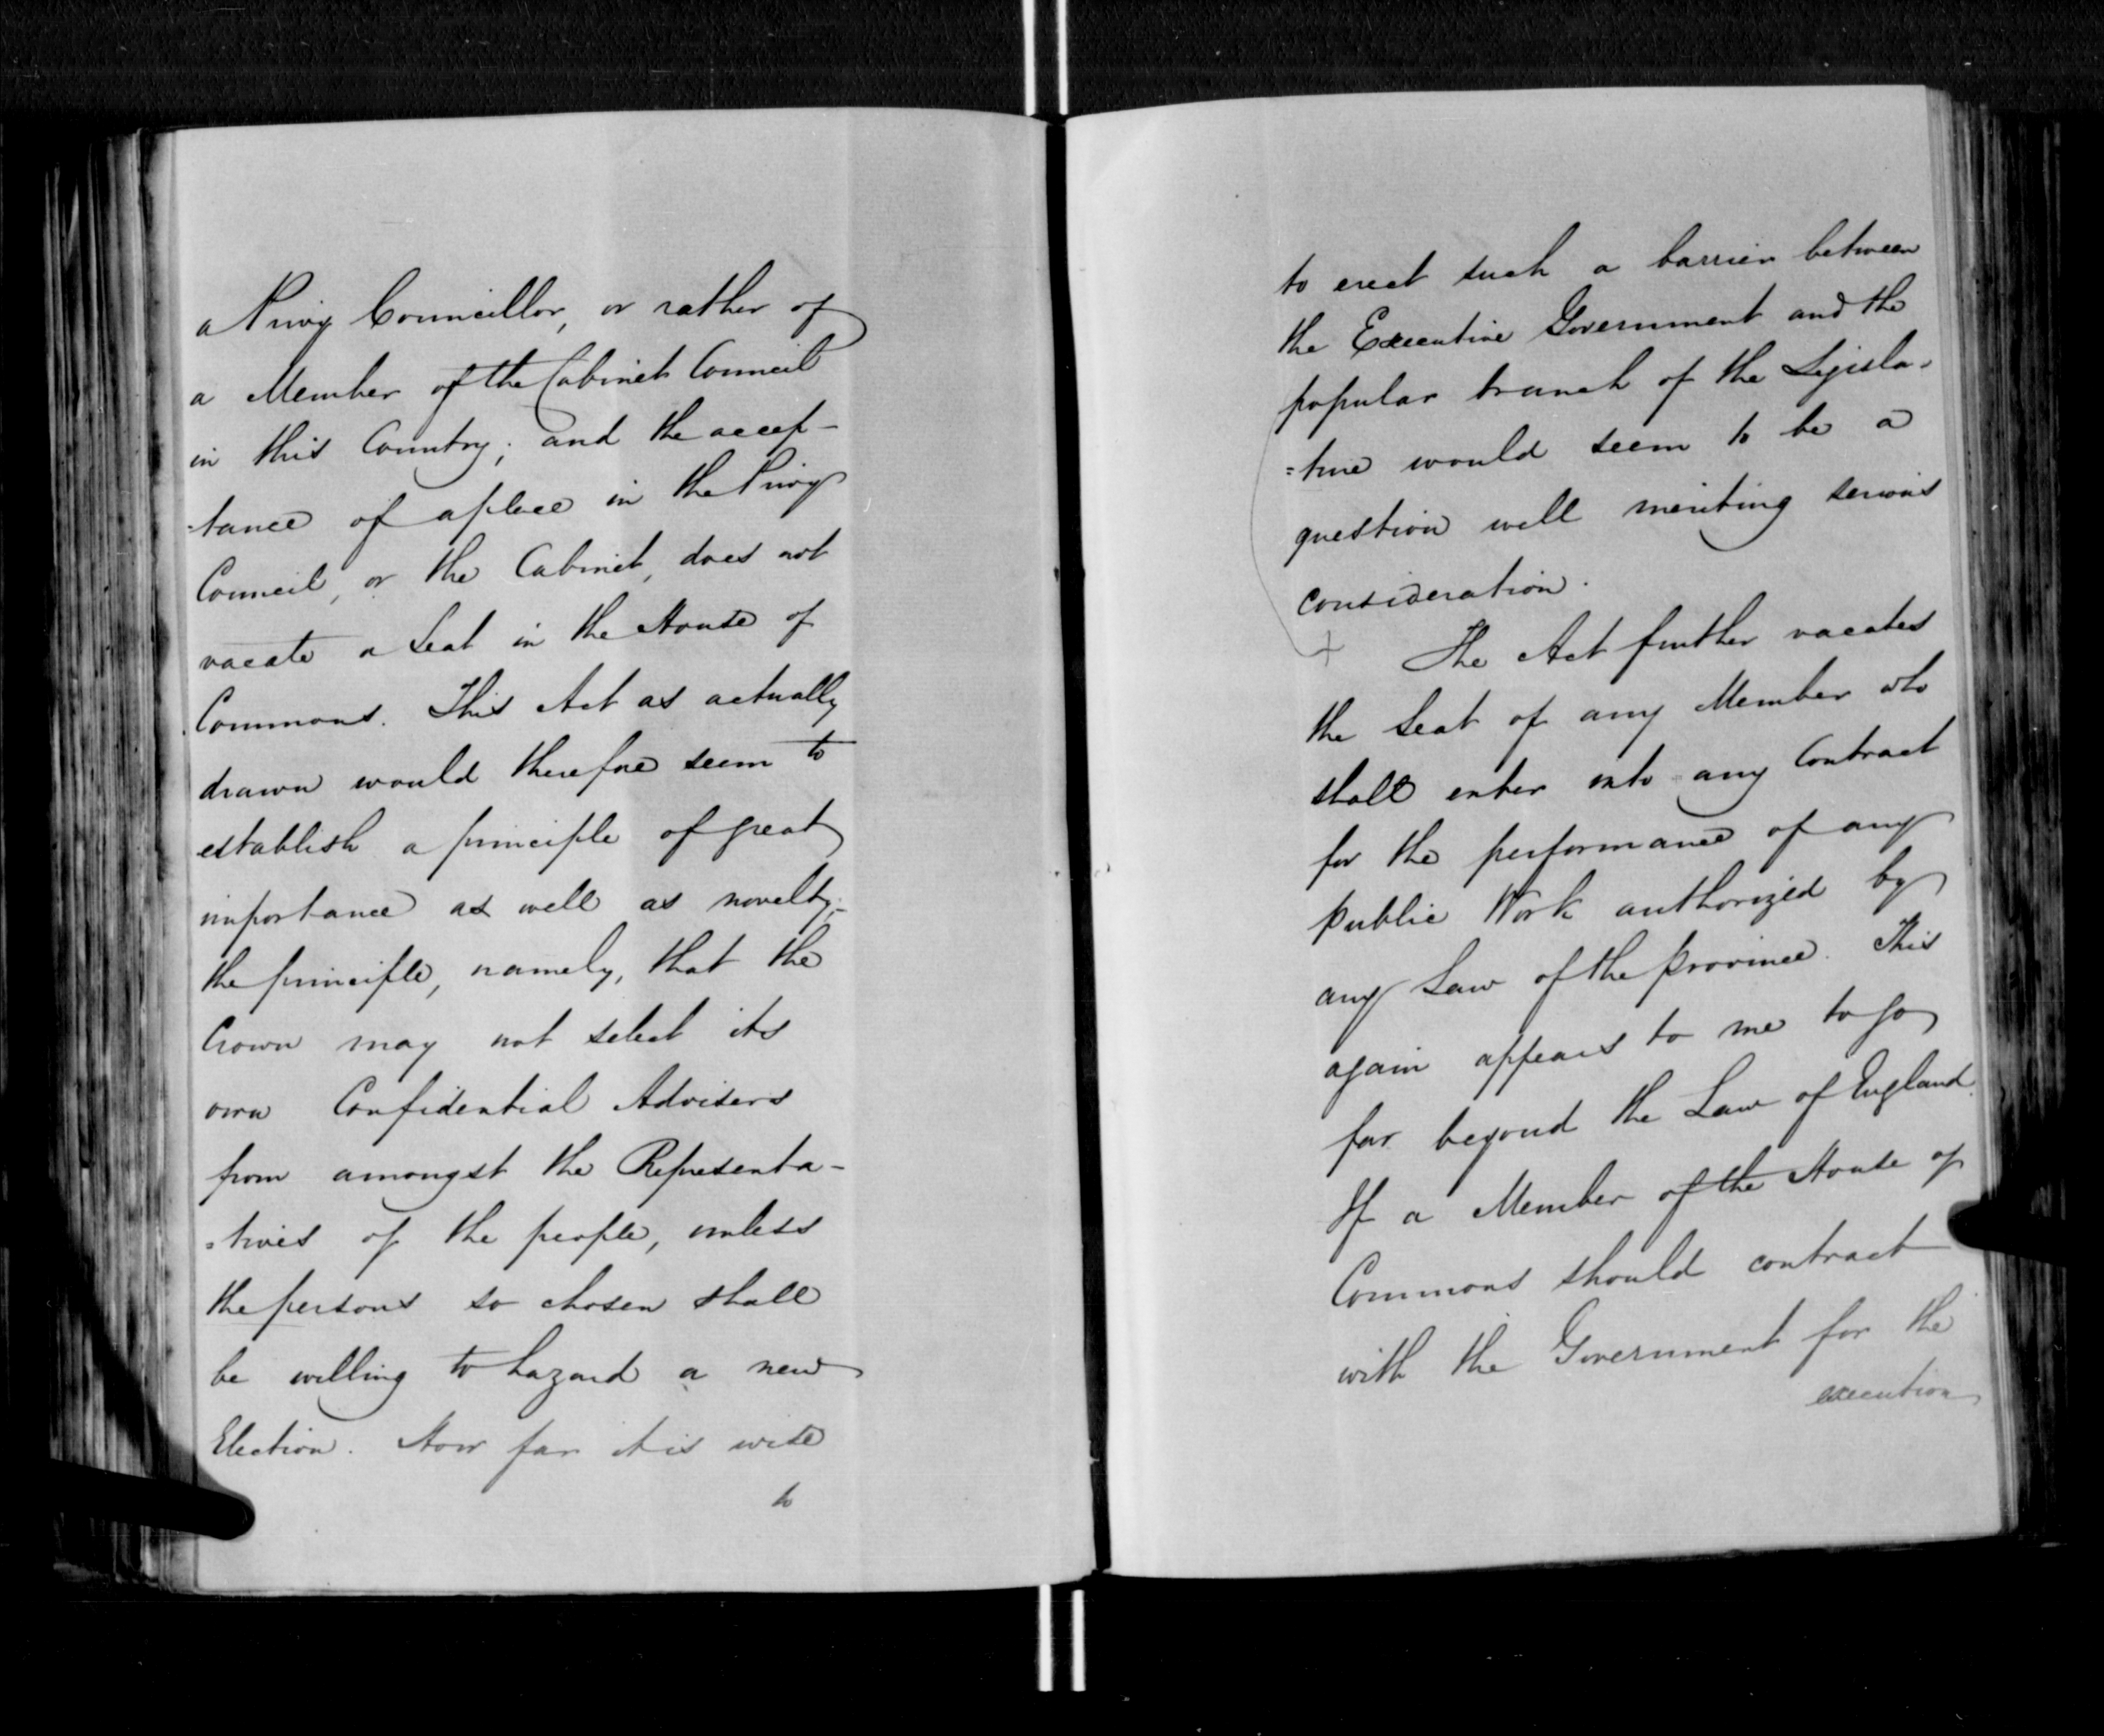 a Privy Councillor, or rather of
a Member of the Cabinet Council
in this Country; and the accep-
-tance of a place in the Privy
Council, or the Cabinet, does not
vacate a Seat in the House of
Commons. This Act as actually
drawn would therefore seem to
establish a principle of great
importance as well as novelty;-
the principle, namely, that the
Crown may not select its
own Confidential Advisers
from amongst the Representa-
=tives of the people, unless
the persons so chosen shall
be willing to hazard a new
Election. How far it is wise
to
to erect such a barrier between
the Executive Government and the
popular branch of the Legisla-
=ture would seem to be a
question well meriting serious
consideration.
+ The Act further vacates
the Seat of any Member who
shall enter into any Contract
for the performance of any
public Work authorized by
any Law of the province. This
again appears to me to go
far beyond the Law of England.
If a Member of the House of
Commons should contract
with the Government for the
execution